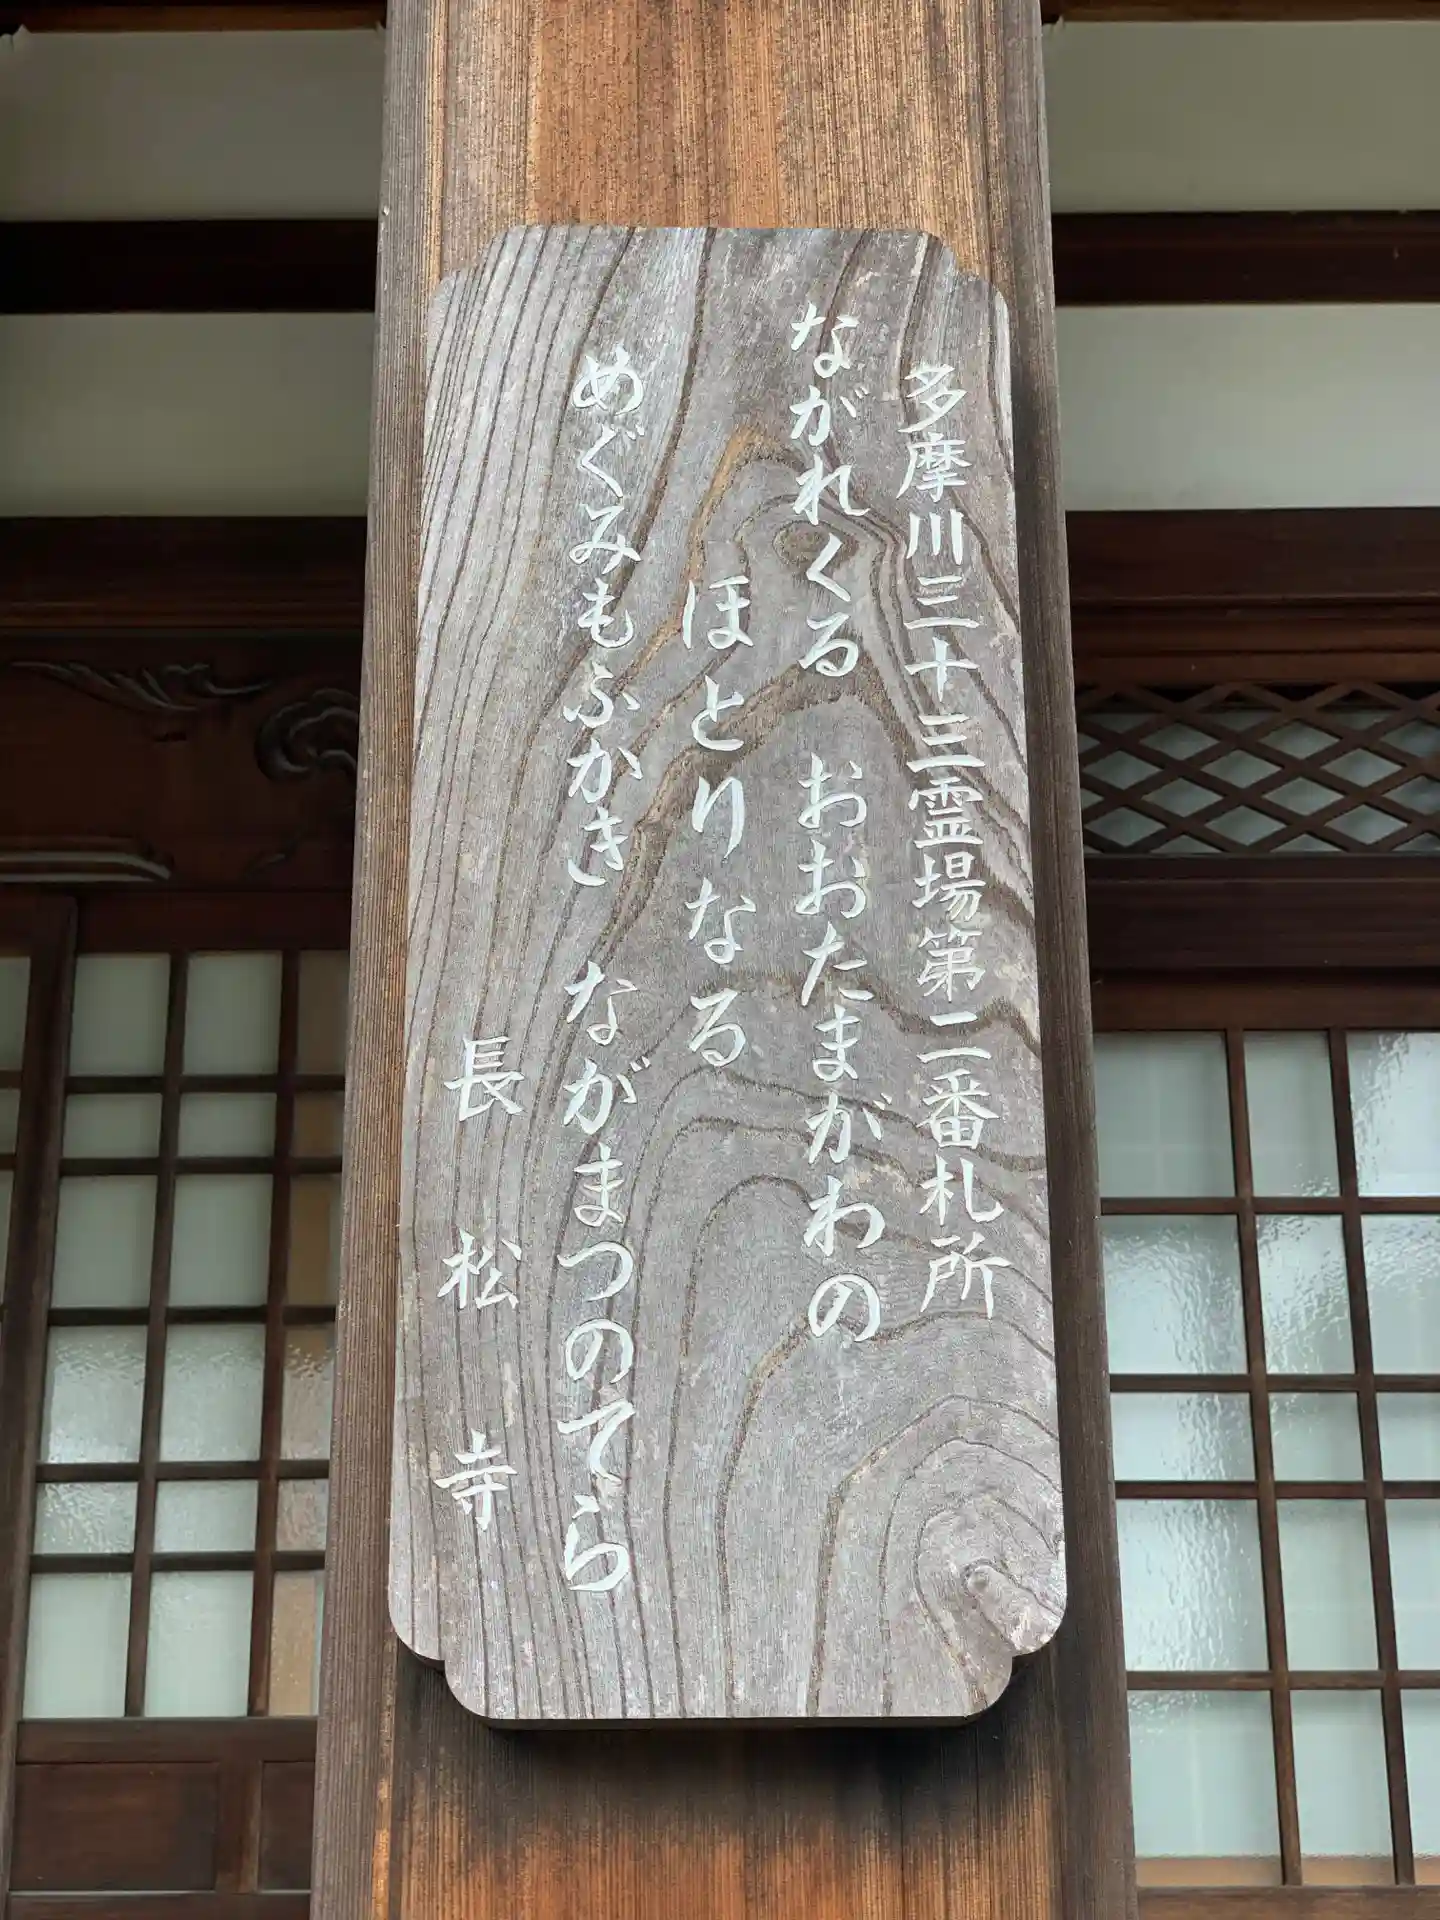 多摩川三十三霊場第二番札所
ながれくる　おおたまがわの
ほとりなる
めぐみもふかき　ながまつのてら
長松寺